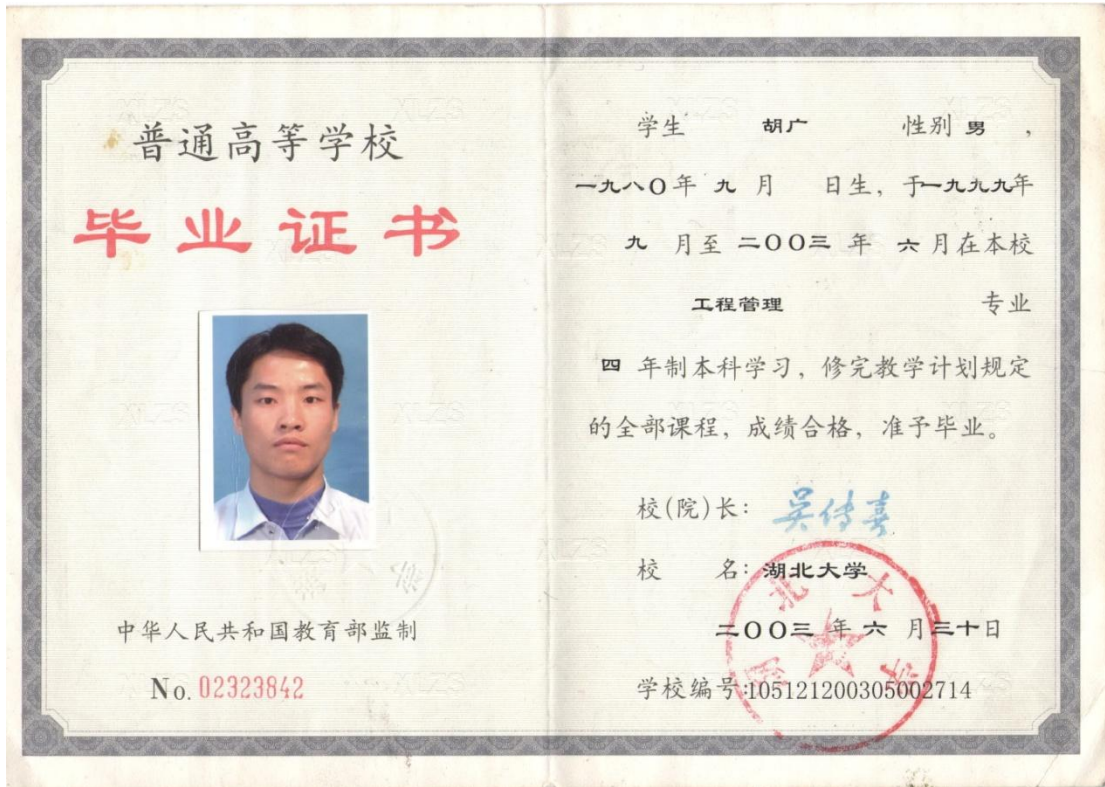 普通高等学校
毕业证书
中华人民共和国教育部监制
No. 02323842
学生 胡广 性别 男 ，
一九八〇年 九 月 日生，于一九九九年
九 月至 二〇〇三 年 六 月在本校
工程管理 专业
四 年制本科学习，修完教学计划规定
的全部课程，成绩合格，准予毕业。
校(院)长： 吴传喜
校 名：湖北大学
二〇〇三 年 六 月三十日
学校编号:105121200305002714
湖北大学
XLZS